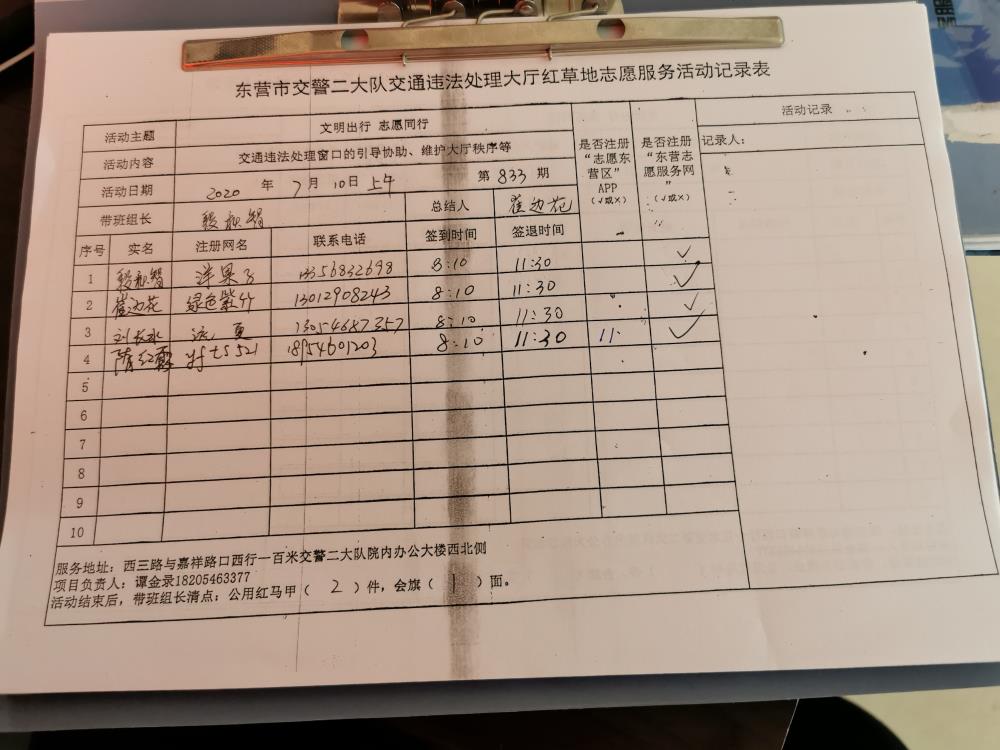 东营市交警二大队交通违法处理大厅红草地志愿服务活动记录表
活动主题 文明出行 志愿同行
活动内容 交通违法处理窗口的引导协助、维护大厅秩序等
活动日期 2020 年 7 月 10 日 上午 第 833 期
带班组长 总结人 崔边花
是否注册“志愿东营区”APP（√或×）
是否注册“东营志愿服务网”（√或×）
活动记录
记录人：
序号 实名 注册网名 联系电话 签到时间 签退时间
1 洋果子 13356832698 8:10 11:30 ✓
2 崔边花 绿色紫竹 13012908243 8:10 11:30 ✓
3 刘长水 13054687357 8:10 11:30 ✓
4 隋红霞 18954601203 8:10 11:30 ✓
5
6
7
8
9
10
服务地址：西三路与嘉祥路口西行一百米交警二大队院内办公大楼西北侧
项目负责人：谭金录18205463377
活动结束后，带班组长清点：公用红马甲（ 2 ）件，会旗（ 1 ）面。